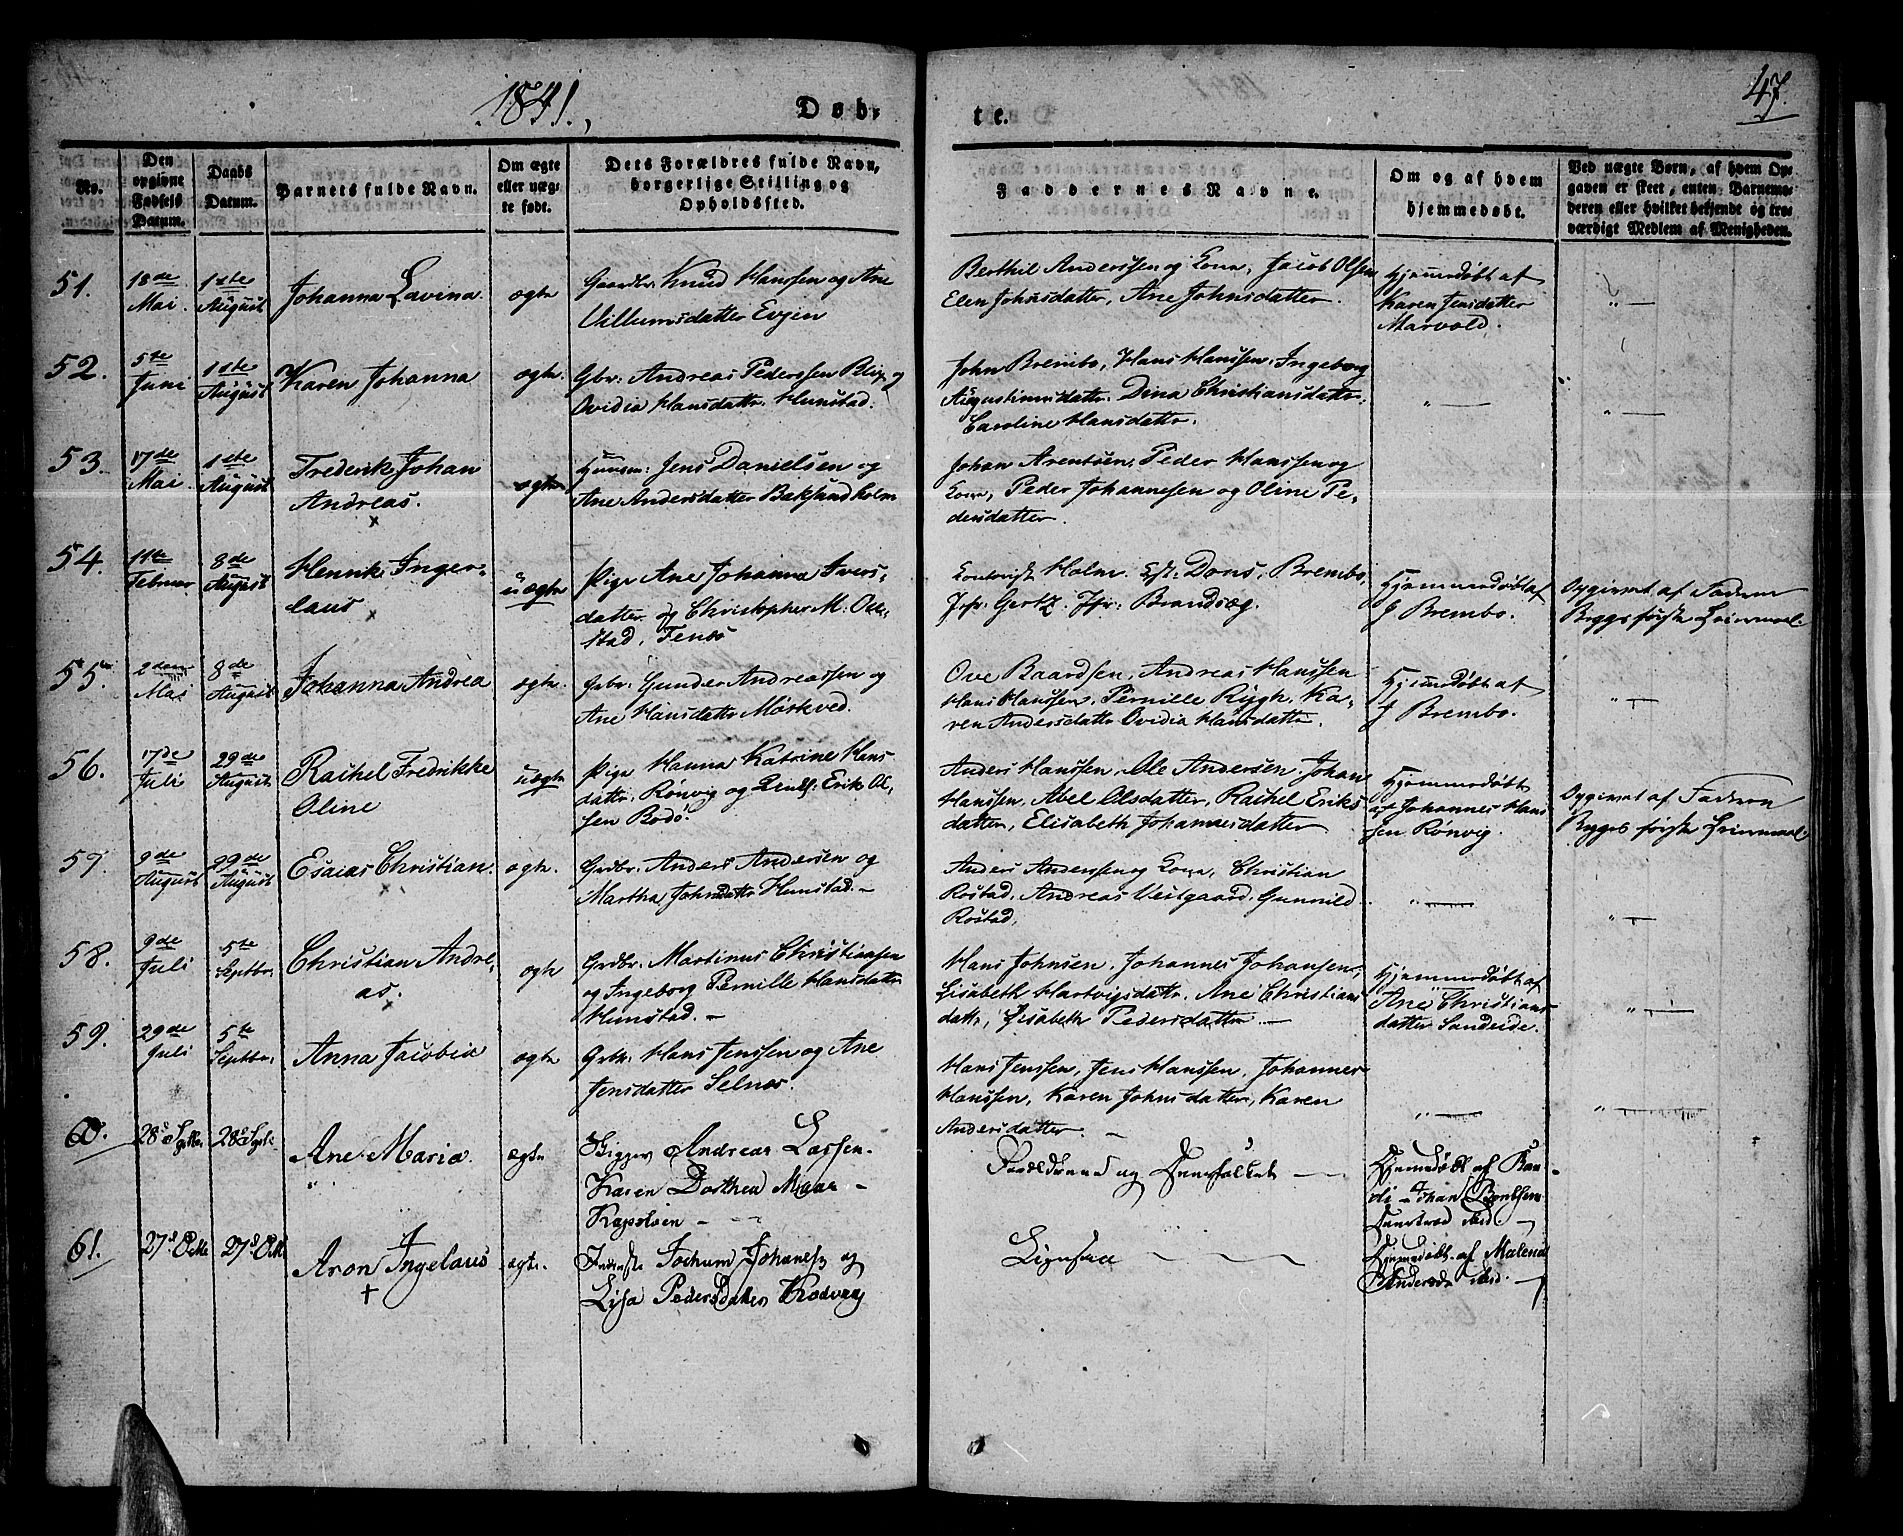 1841.
Døb-
te.
47.
No.
Den
opgivne
Fødsels
Datum.
Daabs
Datum.
Barnets fulde Navn.
Om ægte
eller uæg-
te født.
Dets Forældres fulde Navn,
borgerlige Stilling og
Opholdssted.
Faddernes Navne.
Om og af hvem
hjemmedøbt.
Ved uægte Børn, af hvem Op-
gaven er skeet, enten Barnemo-
deren eller hvilket bekjendt og tro-
værdigt Medlem af Menigheden.
51.
18de
Mai.
1ste
August
Johanna Lavina.
ægte
Gaardbr: Knud Hanssen og Ane
Villumsdatter Evjen
Berthil Anderssen og Kone, Jacob Olsen
Elen Johnsdatter, Ane Johnsdatter.
Hjemmedøbt af
Karen Jensdatter
Marvold.
" —
52.
5te
Juni
1ste
August
Karen Johanna
ægte.
Gbr: Andreas Pederssen Blix og
Ovidia Hansdattr. Hunstad.
John Brembo, Hans Hanssen. Ingeborg
Augustinusdattr. Dina Christiansdattr.
Caroline Hansdattr.
" —
" —
53.
17de
Mai
1ste
August
Frederik Johan
Andreas.
x
ægte
Huusm: Jens Danielsen og
Ane Andersdatter Baksundholm
Johan Arentsen, Peder Hanssen og
Kone, Peder Johannesen og Oline Pe-
dersdatter.
54.
11te
Februar
8de
August
Henrik Inger-
laus
x
uægte
Pige Ane Johanna Ivers-
datter og Christopher M:
stad, Fenes
Kontorist Holm. Dons, Brembo,
Jfr: Gertz. Jfr: Brandsæg.
Hjemmedøbt af
J Brembo.
Opgivet af Faderen
Begges første Leiermaal.
55.
2den
Mai
8de
August
Johanna Andrea
ægte.
Grbr: Gunder Andreassen og
Ane Hansdattr Mørkved.
Ove Baardsen, Andreas Hanssen
Hans Hanssen, Pernille Rygh, Ka-
ren Andersdattr Ovidia Hansdattr.
Hjemmedøbt af
J Brembo.
" —
56.
17de
Juli
29de
August
Rachel Fredrikke
Oline
uægte
Pige Hanna Katrine Hans-
dattr. Rønvig og Erik Ol-
sen Bodø.
Anders Hanssen, Ole Andersen. Johan
Hanssen, Abel Olsdatter, Rachel Eriks
datter, Elisabeth Johannesdatter
Hjemmedøbt
af Johannes Han-
sen Rønvig.
Opgivet af Faderen
Begges første Leiermaal
57.
9de
August
29de
August
Esaias Christian.
x
ægte.
Grdbr: Anders Andersen og
Martha Johnsdattr Hunstad. -
Anders Anderssen og Kone, Christian
Rostad, Andreas Vestgaard, Gunnild
Rostad.
" —
" —
58.
9de
Juli
5te
Septbr.
Christian Andre-
as.
x
ægte
Grdbr: Martinus Christiansen
og Ingeborg Pernille Hansdattr
Hunstad. -
Hans Johnsen, Johannes Johansen,
Lisabeth Hartvigsdattr. Ane Christians
dattr, Lisabeth Pedersdatter. —
Hjemmedøbt af
Ane Christians-
datter Sandeide.
" —
59.
29de
Juli
5te
Septbr.
Anna Jacobia
ægte
Grbr. Hans Jenssen og Ane
Jensdatter Selnes.
Hans Jenssen, Jens Hanssen, Johannes
Hanssen, Karen Johnsdatter, Karen
Andersdatter. -
" —
" —
60.
Ane Maria.
"
ægte
Andreas Lassen.
Karen Dorthea -
Kapelsen -
Forældrene og —
Hjemmedøbt af
Johan
61.
27d. Octbr
27d. Octbr
Aron Ingelaus
+
ægte.
Inderste Jochum Johanes og
Lisa Pedersdatter
Ligesaa
Hjemmedøbt af Malena
Andersd